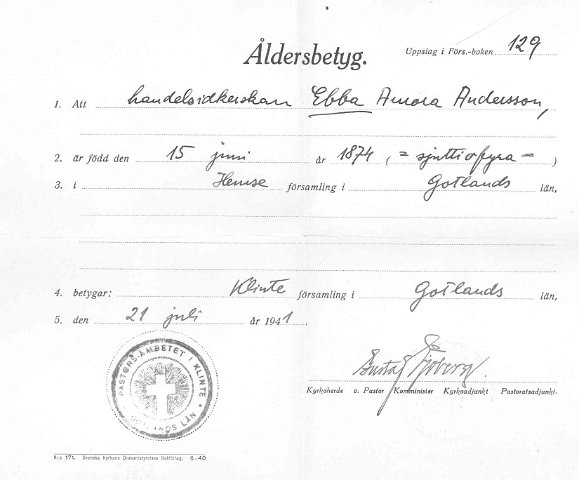 Åldersbetyg.
Uppslag i Förs.-boken 129
1. Att handelsidkerskan Ebba Aurora Andersson,
2. är född den 15 juni år 1874 (= sjuttiofyra = )
3. i Hemse församling i Gotlands län,
4. betygar: Klinte församling i Gotlands län,
5. den 21 juli år 1941
Gustaf Sjöberg.
Kyrkoherde v. Pastor Komminister Kyrkoadjunkt Pastoratsadjunkt.
PASTORSÄMBETET I KLINTE * GOTLANDS LÄN *
171. Svenska Kyrkans Diakonistyrelses Bokförlag. 6.40